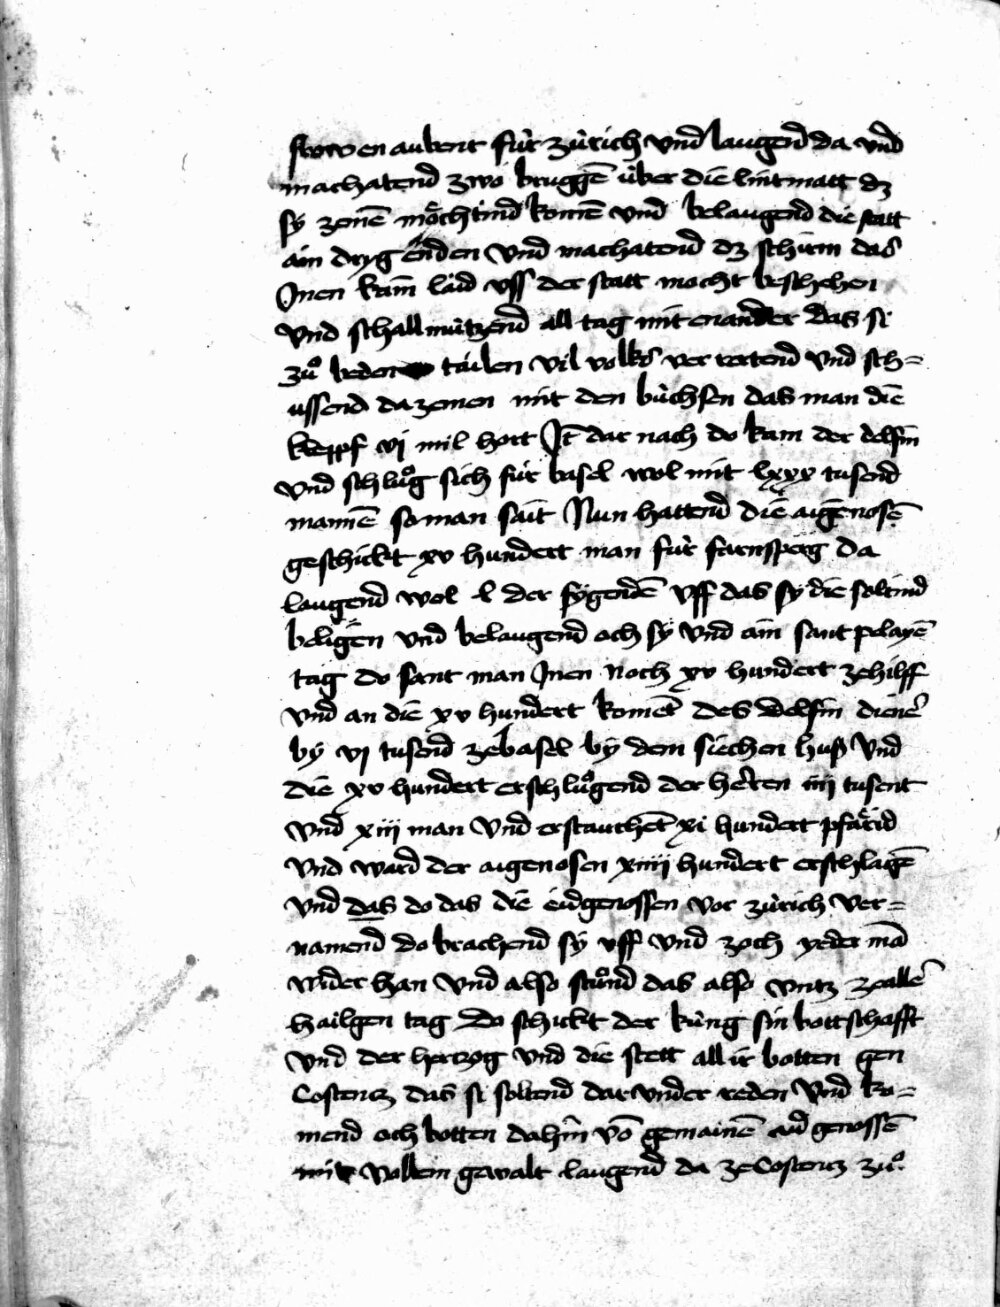 frowen aubent für zürich vnd laugend da vnd
machatend zwo bruggē über die lintmatt dz
sy zenē möchtind komē vnd belaugend die statt
ain dryg enden vnd machatend dz schirm das
Jnen kain laid vss der statt mocht beschehen
vnd schallmützend all tag mit enander das si
zů beden tailen vil volks ver rertend vnd sch=
ussend dazemen mit den büchsen das man die
klepf vj mil hort Jt dar nach do kam der delfin
vnd schlůg sich für basel wol mit lxxx tusend
mannē so man sait Nun hattend die aigenosē
geschickt xv hundert man für farnsperg da
laugend wol l der fygendē vff das sy die soltind
beligen vnd belaugend och sy vnd ain sant pelayē
tag do sant man Jnen noch xv hundert zehilff
vnd an die xv hundert komēt des delfin dienē
by vj tusend zebasel by dem siechen huß vnd
die xv hundert erschlůgend der herren iiij tusent
vnd xiij man vnd erstauchēt xj hundert pfärid
vnd ward der aigenosen xiiij hundert erschlagē
vnd das do das die eidgenossen vor zürich ver=
namend do brachend sy vff vnd zoch yeder mā
wider han vnd also stůnd das also vntz zeallē
hailgen tag do schickt der küng sin bottschafft
vnd der hertzog vnd die stett all ir botten gen
Costentz das si soltend dar vnder reden vnd ko=
mend och botten dahin vō gemainē aidgenossē
mit vollem gewalt laugend da zeCostentz zů.